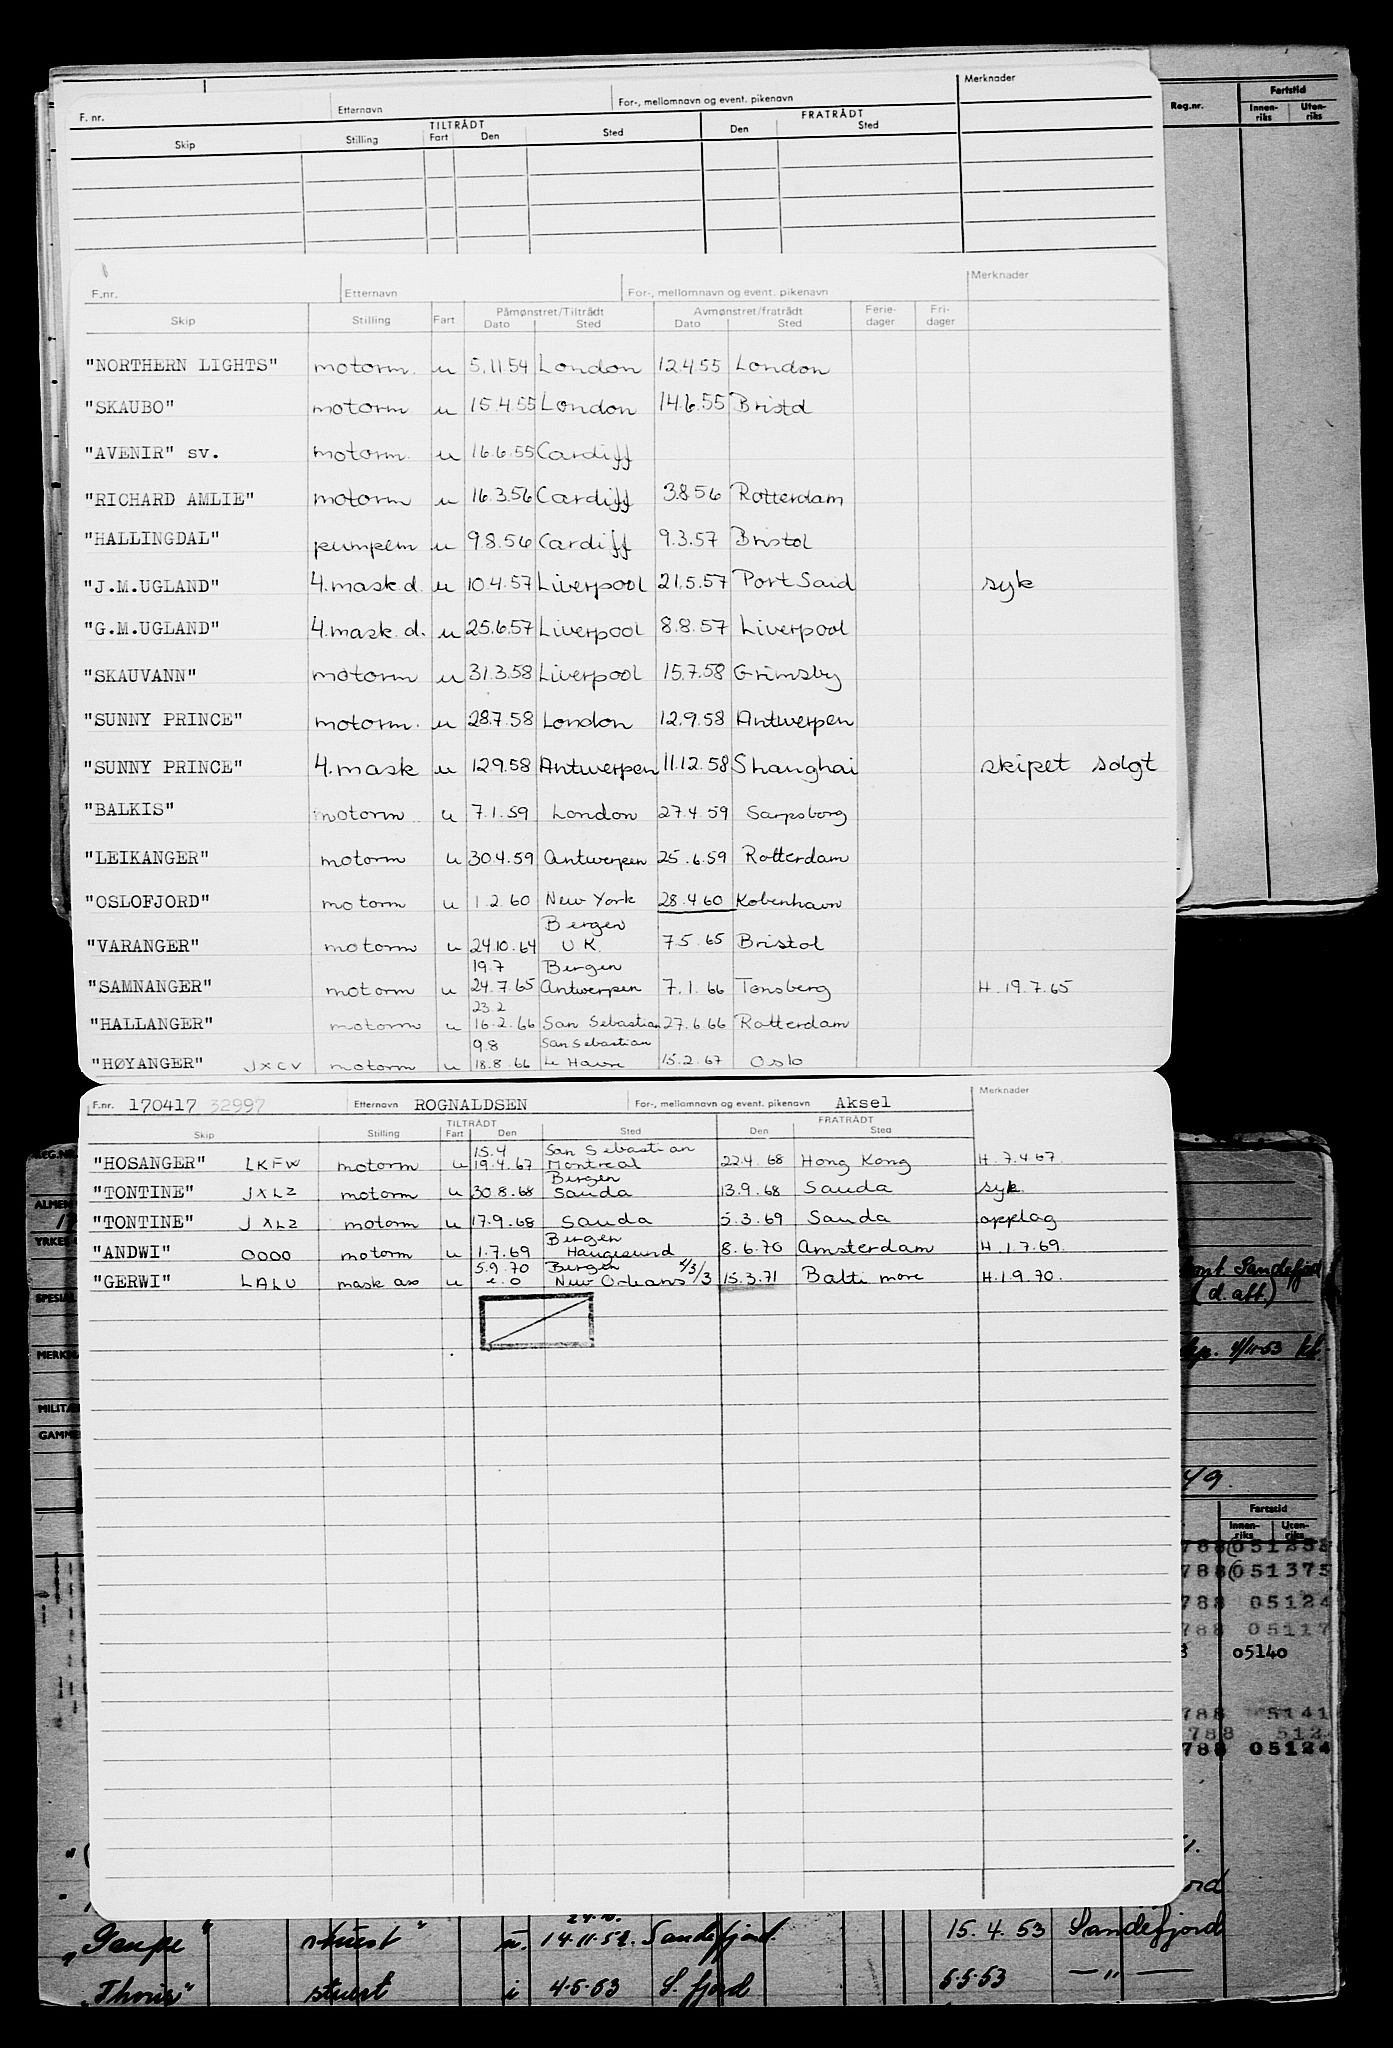 Merknader
F. nr. Etternavn For-, mellomnavn og event. pikenavn
TILTRÅDT FRATRÅDT
Skip Stilling Fart Den Sted Den Sted
Reg.nr. Fartstid
Innen-riks Uten-riks
Merknader
F.nr. Etternavn For-, mellomnavn og event. pikenavn
Skip Stilling Fart Påmønstret/Tiltrådt Avmønstret/fratrådt Ferie-dager Fri-dager
Dato Sted Dato Sted
"NORTHERN LIGHTS" motorm. u 5.11.54 London 12.4.55 London
"SKAUBO" motorm u 15.4.55 London 14.6.55 Bristol
"AVENIR" sv. motorm. u 16.6.55 Cardiff
"RICHARD AMLIE" motorm u 16.3.56 Cardiff 3.8.56 Rotterdam
"HALLINGDAL" pumpem u 9.8.56 Cardiff 9.3.57 Bristol
"J.M.UGLAND" 4.mask.d. u 10.4.57 Liverpool 21.5.57 Port Said syk
"G.M.UGLAND" 4.mask.d. u 25.6.57 Liverpool 8.8.57 Liverpool
"SKAUVANN" motorm u 31.3.58 Liverpool 15.7.58 Grimsby
"SUNNY PRINCE" motorm. u 28.7.58 London 12.9.58 Antwerpen
"SUNNY PRINCE" 4.mask u 12.9.58 Antwerpen 11.12.58 Shanghai skipet solgt
"BALKIS" motorm u 7.1.59 London 27.4.59 Sarpsborg
"LEIKANGER" motorm u 30.4.59 Antwerpen 25.6.59 Rotterdam
"OSLOFJORD" motorm u 1.2.60 New York 28.4.60 København
Bergen
"VARANGER" motorm u 24.10.64 U.K. 7.5.65 Bristol
19.7 Bergen
"SAMNANGER" motorm u 24.7.65 Antwerpen 7.1.66 Tønsberg H.19.7.65
23.2
"HALLANGER" motorm u 16.2.66 San Sebastian 27.6.66 Rotterdam
9.8 San Sebastian
"HØYANGER" JXCV motorm u 18.8.66 Le Havre 15.2.67 Oslo
Merknader
F.nr. 170417 32997 Etternavn ROGNALDSEN For-, mellomnavn og event. pikenavn Aksel
TILTRÅDT FRATRÅDT
Skip Stilling Fart Den Sted Den Sted
15.4 San Sebastian
"HOSANGER" LKFW motorm u 19.4.67 Montreal 22.4.68 Hong Kong H.7.4.67.
Bergen
"TONTINE" JXLZ motorm u 30.8.68 Sauda 13.9.68 Sauda syk
"TONTINE" JXLZ motorm u 17.9.68 Sauda 5.3.69 Sauda opplag
Bergen
"ANDWI" OOOO motorm u 1.7.69 Haugesund 8.6.70 Amsterdam H.1.7.69.
5.9.70 Bergen
"GERWI" LALU mask ass u e.o New Orleans 15.3.71 Baltimore H.1.9.70.
REG.NR
ALMEN
YRKES
SPESIAL
MERKN
MILITÆ
GAMME
mont. Sandefjord
(d.aft.)
49.
Fartstid
Innen-riks Uten-riks
788 051375
788 05124
788 05117
05140
788 5141
788 512
788 05124
24.10.
"Gaupe" stuert u. 14.11.52. Sandefjord. 15.4.53 Sandefjord
"Thoris" stuert i 4.5.53 S.fjord 5.5.53 — " —